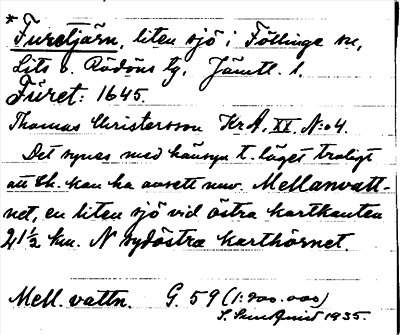 * Furetjärn, liten sjö i Föllinge sn,
Lits o. Rödöns tg, Jämtl. l.
Furet: 1645.
Thomas Christersson KrA. XX N:o 4.
Det synes med hänsyn t. läget troligt
att Th. kan ha avsett nuv. Mellanvatt-
net, en liten sjö vid östra kartkanten
2 1/2 km. N sydöstra karthörnet.
Mell. vattn. G. 59 (1:200.000)
S. Sundquist 1935.